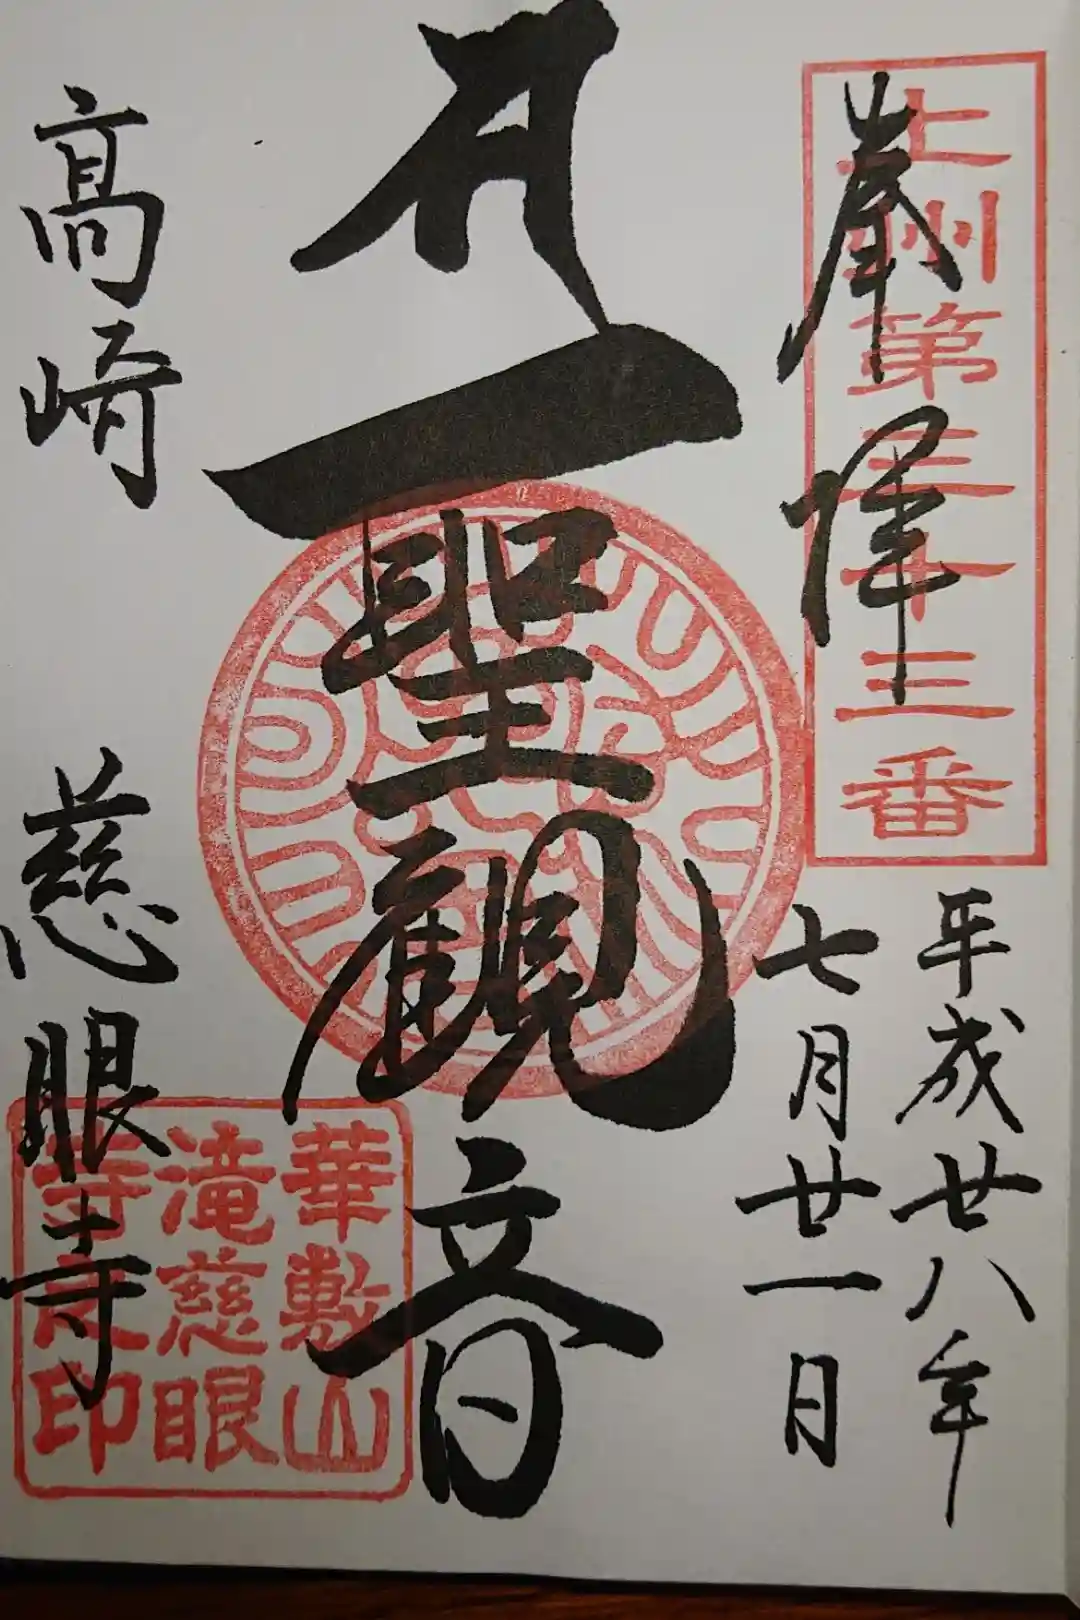 奉拝
上州第三十三番
平成廿八年
七月廿一日
聖觀音
高崎 慈眼寺
華敷山
滝慈眼
寺之印